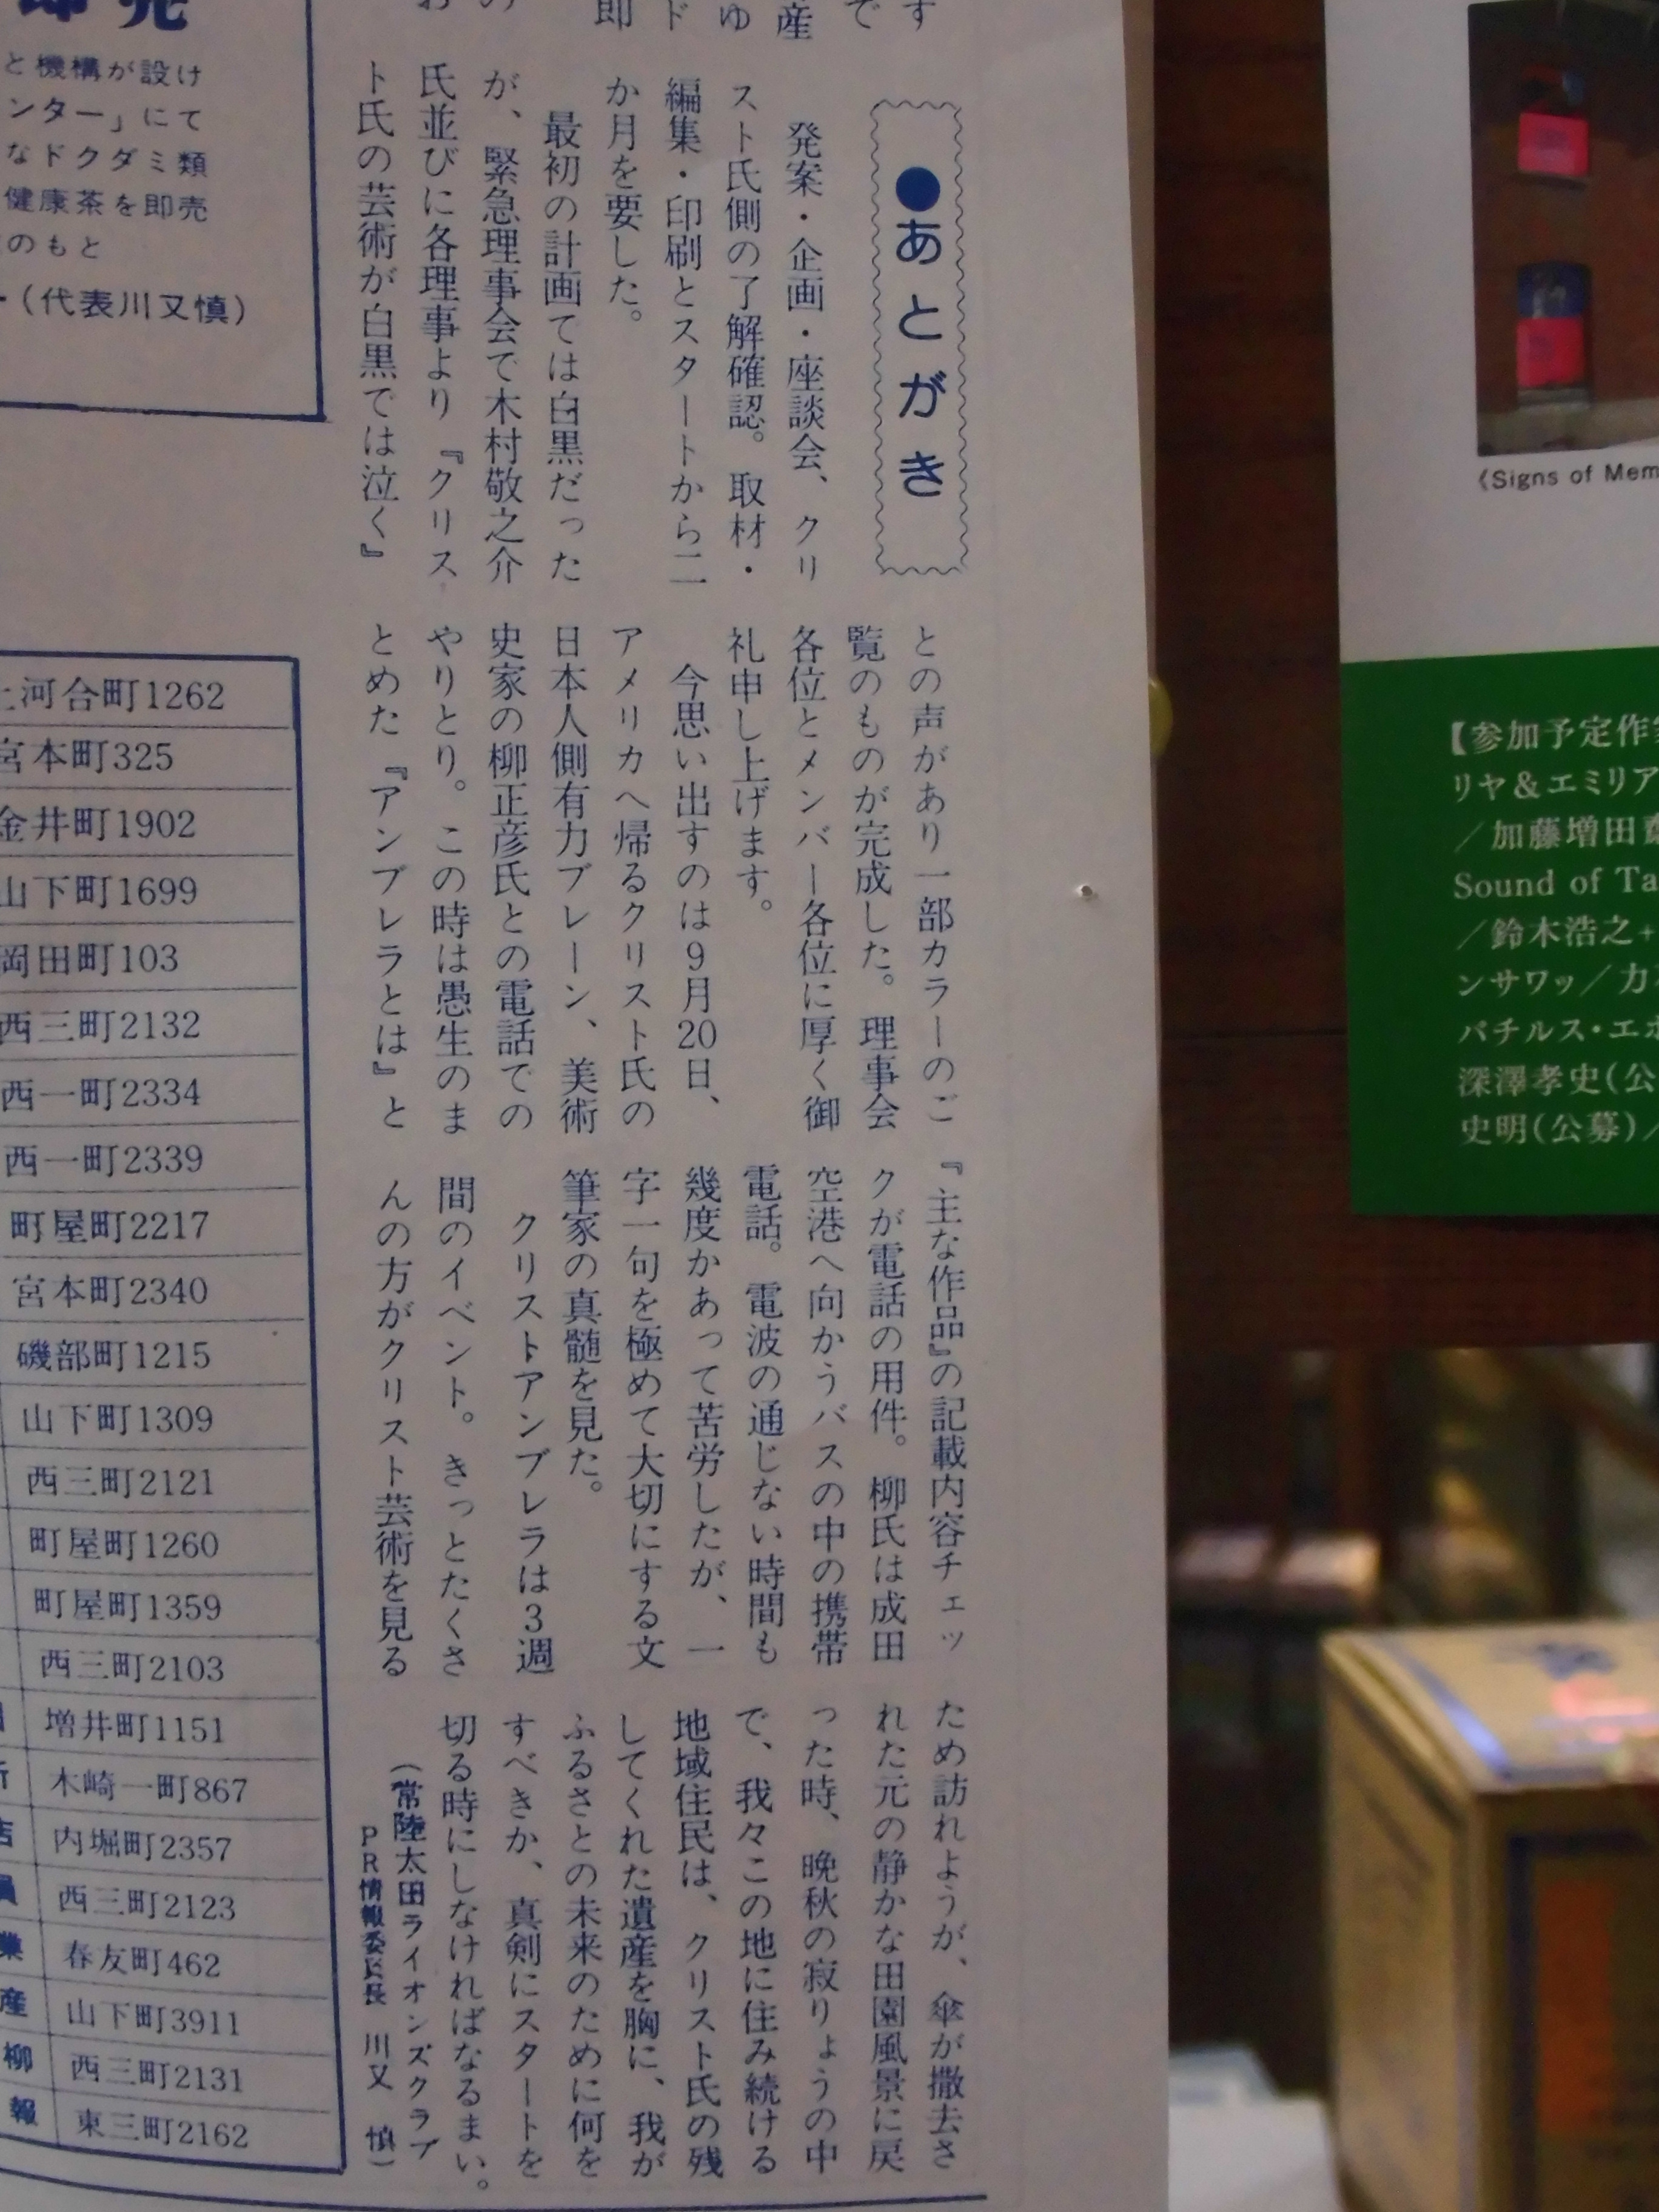 ●あとがき
発案・企画・座談会、クリ
スト氏側の了解確認。取材・
編集・印刷とスタートから二
か月を要した。
最初の計画では白黒だった
が、緊急理事会で木村敬之介
氏並びに各理事より『クリス
ト氏の芸術が白黒では泣く』
との声があり一部カラーのご
覧のものが完成した。理事会
各位とメンバー各位に厚く御
礼申し上げます。
今思い出すのは9月20日、
アメリカへ帰るクリスト氏の
日本人側有力ブレーン、美術
史家の柳正彦氏との電話での
やりとり。この時は愚生のま
とめた『アンブレラとは』と
『主な作品』の記載内容チェッ
クが電話の用件。柳氏は成田
空港へ向かうバスの中の携帯
電話。電波の通じない時間も
幾度かあって苦労したが、一
字一句を極めて大切にする文
筆家の真髄を見た。
クリストアンブレラは3週
間のイベント。きっとたくさ
んの方がクリスト芸術を見る
ため訪れようが、傘が撤去さ
れた元の静かな田園風景に戻
った時、晩秋の寂りょうの中
で、我々この地に住み続ける
地域住民は、クリスト氏の残
してくれた遺産を胸に、我が
ふるさとの未来のために何を
すべきか、真剣にスタートを
切る時にしなければなるまい。
(常陸太田ライオンズクラブ
PR情報委員長 川又 慎)
す
で
産
ゆ
ド
即
の
お
即売
と機構が設け
ンター」にて
なドクダミ類
健康茶を即売
のもと
・(代表川又慎)
上河合町1262
宮本町325
金井町1902
山下町1699
岡田町103
西三町2132
西一町2334
西一町2339
町屋町2217
宮本町2340
磯部町1215
山下町1309
西三町2121
町屋町1260
町屋町1359
西三町2103
増井町1151
木崎一町867
店 内堀町2357
員 西三町2123
業 春友町462
産 山下町3911
柳 西三町2131
報 東三町2162
《Signs of Mem
【参加予定作家
リヤ&エミリア
/加藤増田
Sound of Ta
/鈴木浩之+
ンサワッ/カ
バチルス・エ
深澤孝史(公
史明(公募)/